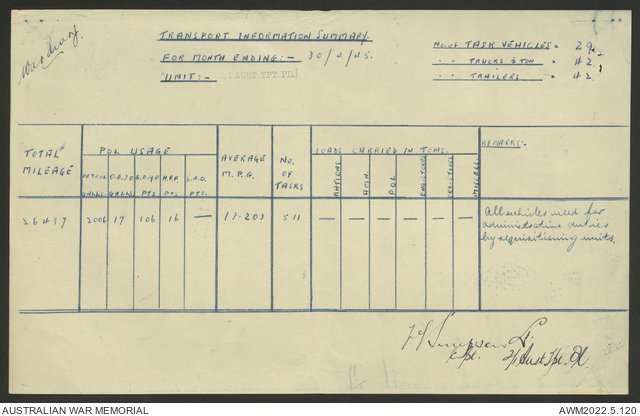 War diary.
TRANSPORT INFORMATION SUMMARY.
FOR MONTH ENDING:- 30/4/45.
UNIT:- AUST. TPT. PL.
No. of TASK VEHICLES - 29
" " TRUCKS ½ TON - 42
" " TRAILERS - 42
TOTAL MILEAGE
POL USAGE
PETROL GALLS.
GALLS
PTS
PTS
PTS.
AVERAGE M.P.G.
NO. OF TASKS
LOADS CARRIED IN TONS.
RATIONS
AMN.
POL
REMARKS:-
26497 2006 17 106 16 — 13.203 511 — — — — — —
All vehicles used for
administrative duties
by requisitioning units.
Simpson
Capt. Aust Tpt. Pl.
AUSTRALIAN WAR MEMORIAL
AWM2022.5.120